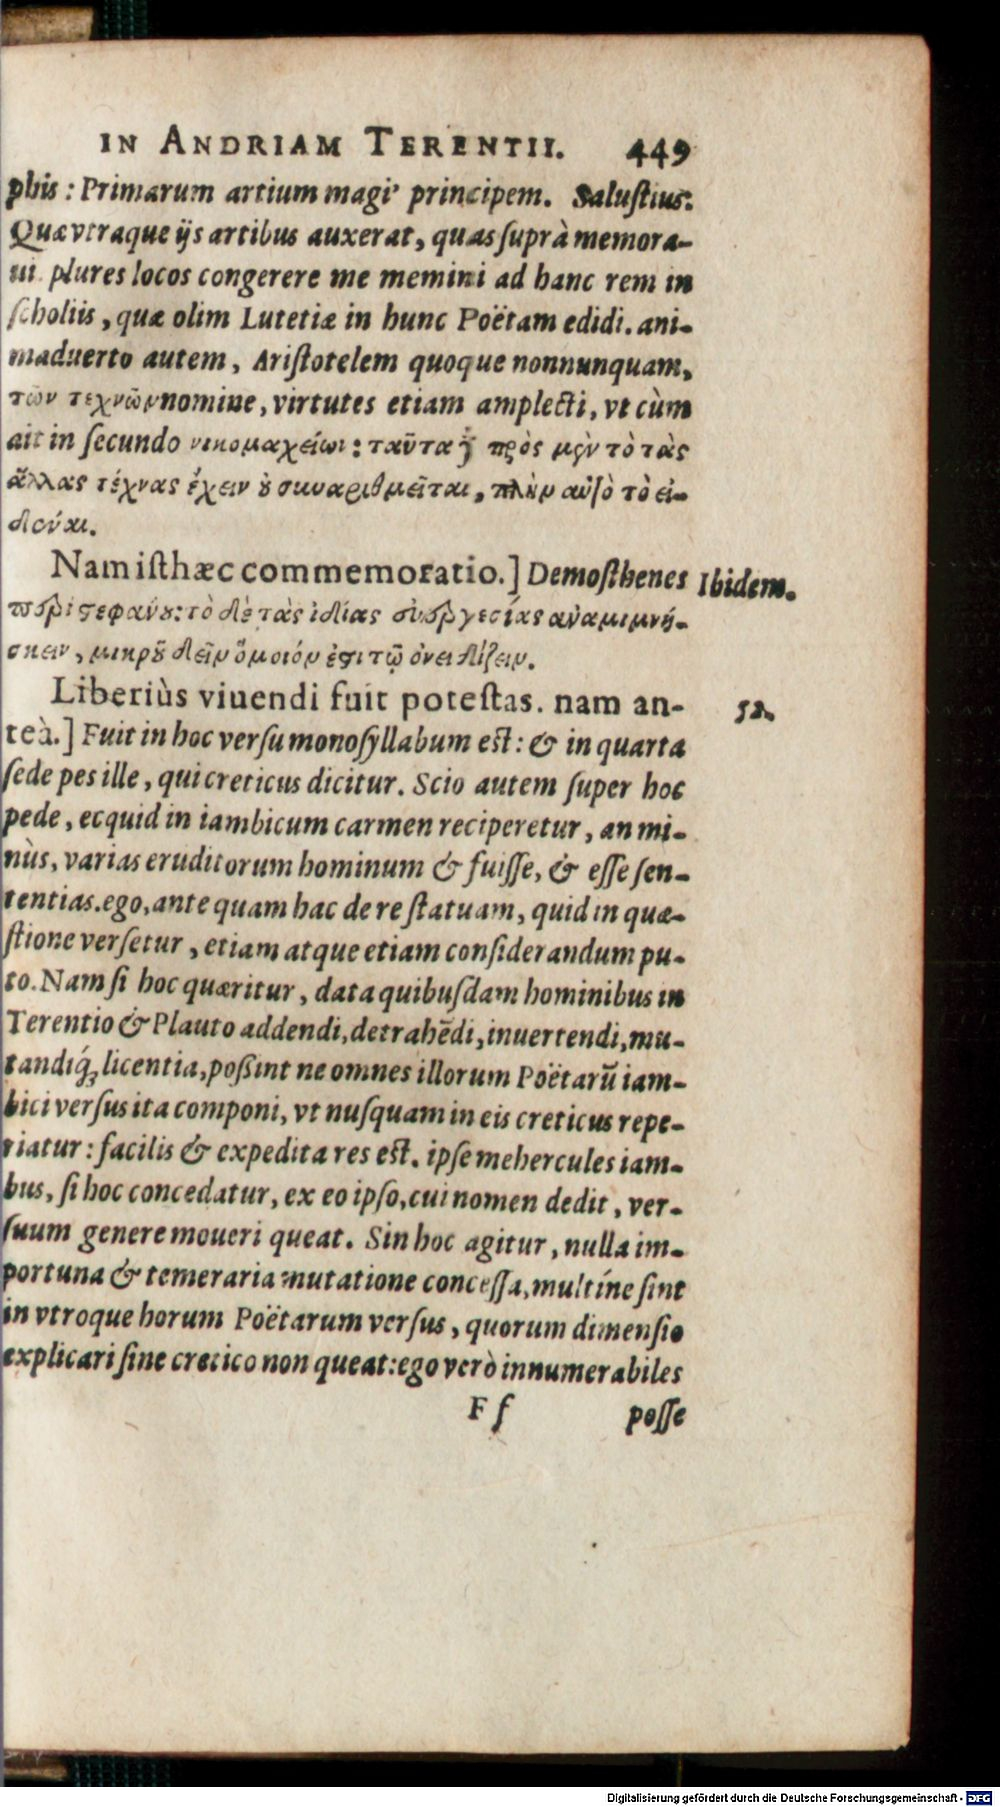 IN ANDRIAM TERENTII. 449
phis: Primarum artium magi' principem. Saluſtius:
Quæ vtraque ijs artibus auxerat, quas ſuprà memora-
ui plures locos congerere me memini ad hanc rem in
ſcholiis, quæ olim Lutetiæ in hunc Poëtam edidi. ani-
maduerto autem, Ariſtotelem quoque nonnunquam,
τῶν τεχνῶν nomine, virtutes etiam amplecti, vt cùm
ait in ſecundo νικομαχείωι: ταῦτα ἢ πρὸς μὲν τὸ τὰς
ἄλλας τέχνας ἔχειν ȣ σιυαριθμεῖται, πλὴν αὐτὸ τὸ εἰ-
δέναι.
Nam iſthæc commemoratio.] Demoſthenes
Ibidem.
περὶ ςεφάνȣ: τὸ δὲ τὰς ἰδίας εὐεργεσίας ἀναμιμνή-
σκειν, μικρȣ͂ δεῖν ὅμοιόν ἐςι τῷ ὀνειδίζειν.
Liberiùs viuendi fuit poteſtas. nam an-
52.
teà.] Fuit in hoc verſu monoſyllabum eſt: & in quarta
ſede pes ille, qui creticus dicitur. Scio autem ſuper hoc
pede, ecquid in iambicum carmen reciperetur, an mi-
nùs, varias eruditorum hominum & fuiſſe, & eſſe ſen-
tentias. ego, ante quam hac de re ſtatuam, quid in quæ-
ſtione verſetur, etiam atque etiam conſiderandum pu-
to. Nam ſi hoc quæritur, data quibuſdam hominibus in
Terentio & Plauto addendi, detrahēdi, inuertendi, mu-
tandiq́; licentia, poßint ne omnes illorum Poëtarū iam-
bici verſus ita componi, vt nuſquam in eis creticus repe-
riatur: facilis & expedita res eſt. ipſe mehercules iam-
bus, ſi hoc concedatur, ex eo ipſo, cui nomen dedit, ver-
ſuum genere moueri queat. Sin hoc agitur, nulla im-
portuna & temeraria mutatione conceſſa, multíne ſint
in vtroque horum Poëtarum verſus, quorum dimenſio
explicari ſine cretico non queat: ego verò innumerabiles
F f poſſe
Digitalisierung gefördert durch die Deutsche Forschungsgemeinschaft - DFG